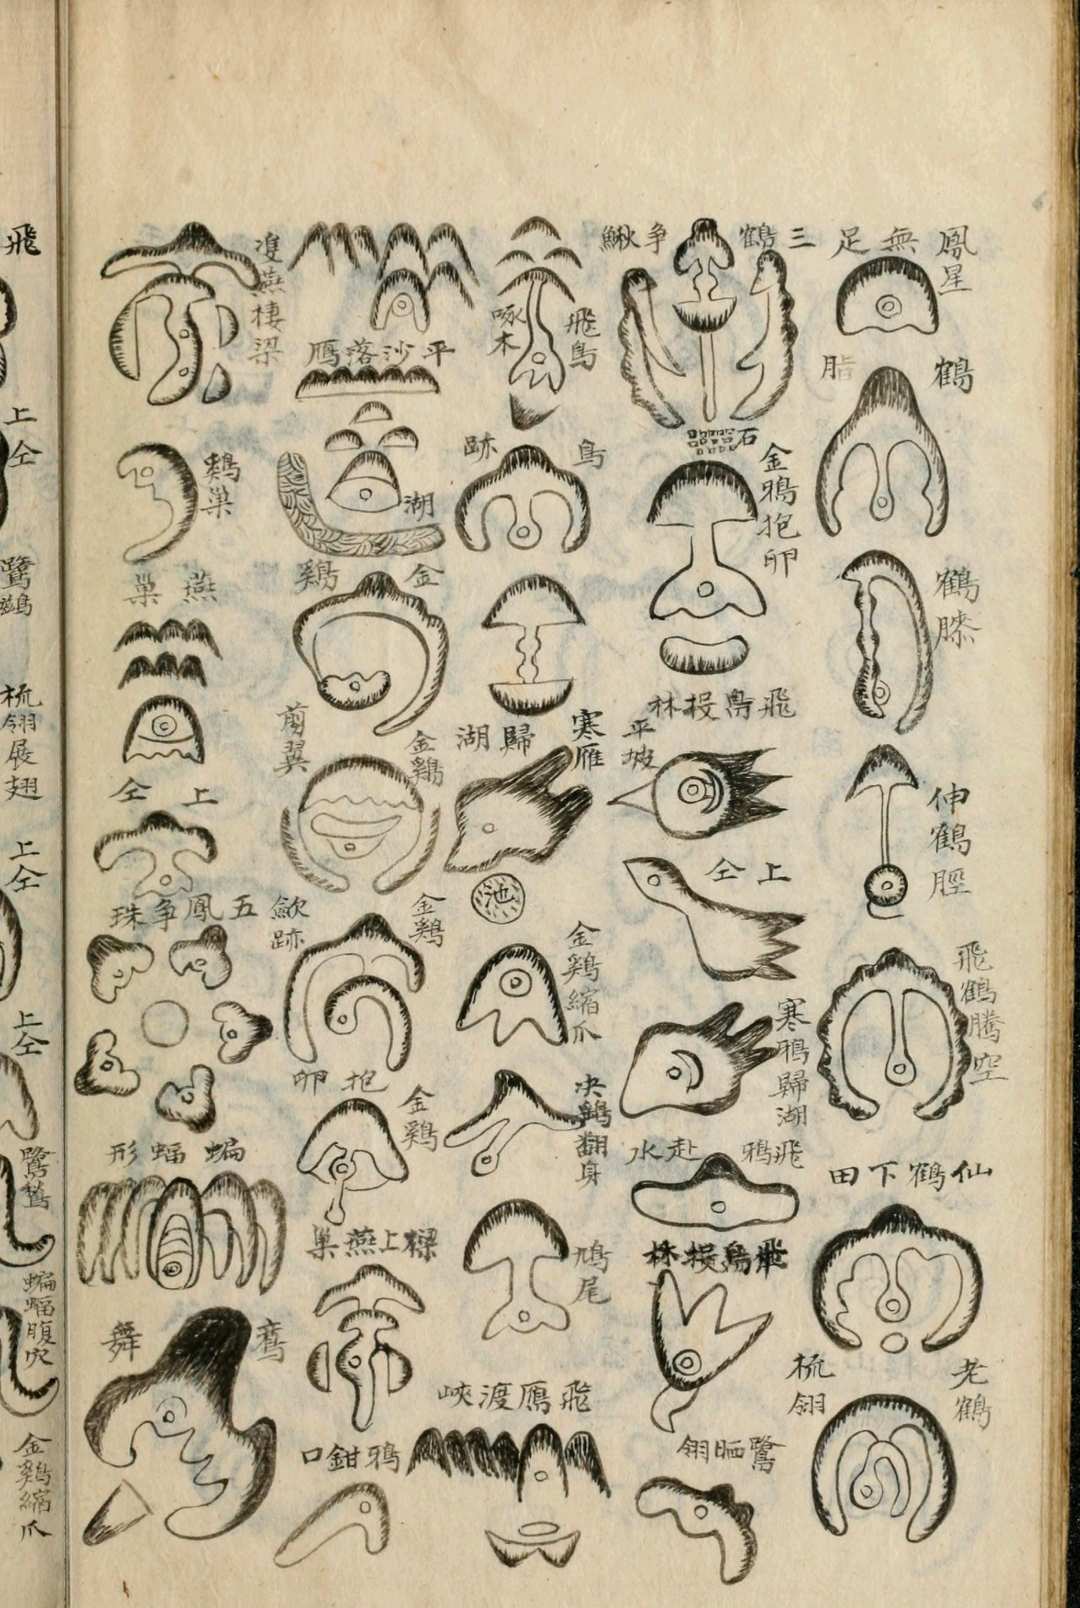 鳳星
無足
鶴
鶴膝
伸鶴脛
飛鶴騰空
仙鶴下田
老鶴
梳翎
三鶴
争鰍
石
金鴉抱卵
飛鳥投林
平坡
上仝
寒鴉歸湖
飛鴉
赴水
飛鳥投林
鷺晒翎
飛鳥
啄木
鳥
跡
寒雁
歸湖
池
金鷄縮爪
翻身
鳩尾
飛鴈渡峽
平沙落鴈
湖
金鷄
金鷄
剪翼
金鷄
歛跡
金鷄
抱卵
樑上燕巢
鴉鉗口
雙燕棲梁
鷄巢
燕巢
上仝
五鳳争珠
蝙蝠形
鸞
舞
飛
上仝
梳翎展翅
上仝
上仝
蝙蝠腹穴
金鷄縮爪